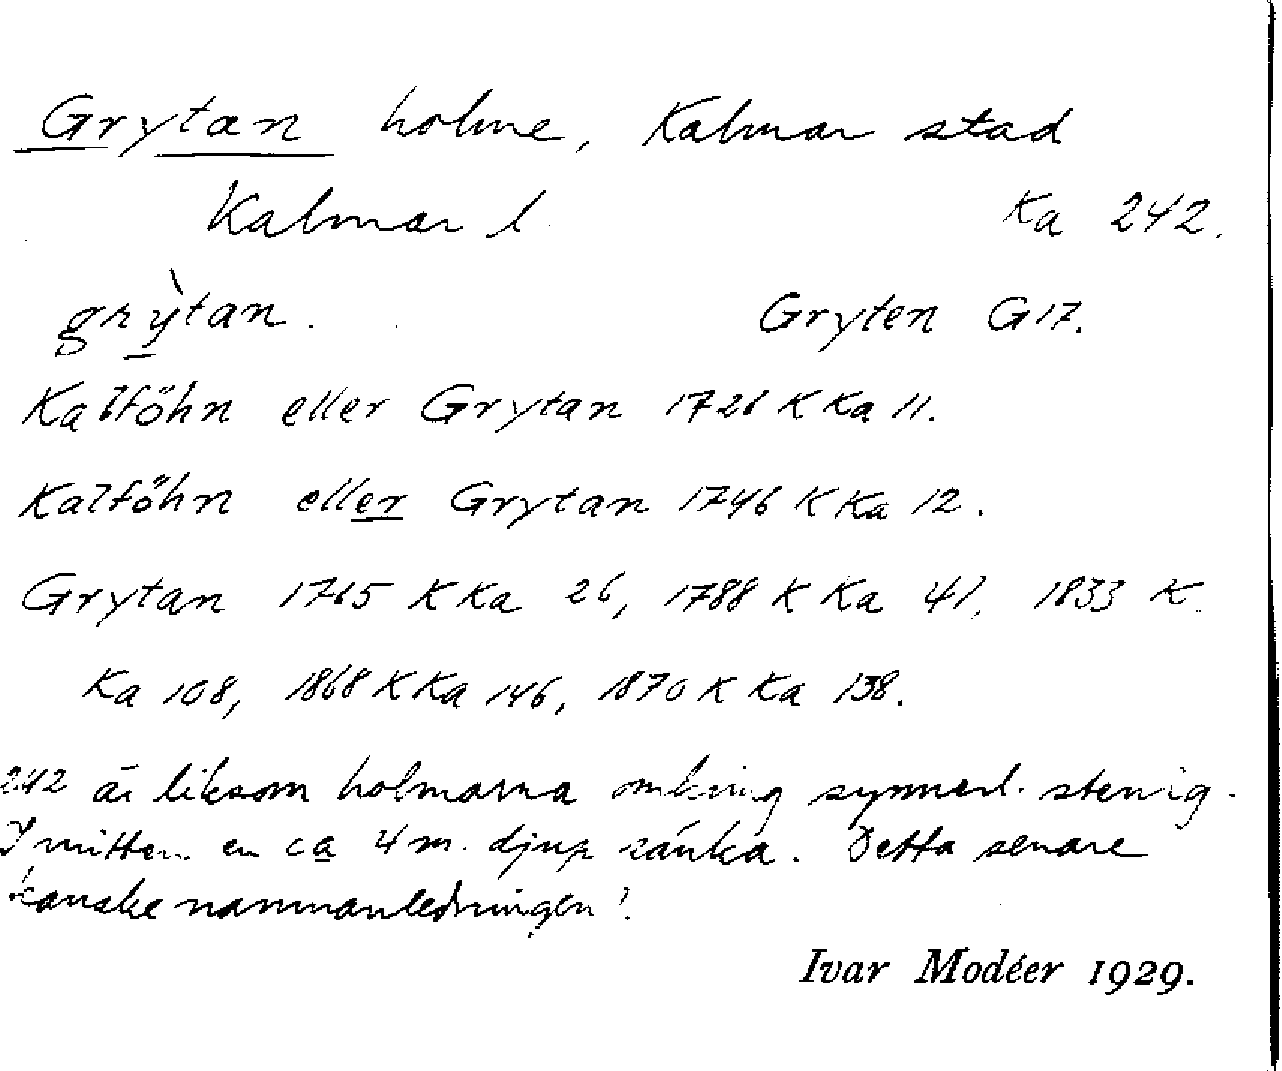 Grytan holme, Kalmar stad
Kalmar l Ka 242.
grỳtan. Gryten G17.
Kalföhn eller Grytan 1726 K Ka 11.
Kalföhn eller Grytan 1746 K Ka 12.
Grytan 1765 K Ka 26, 1788 K Ka 41, 1833 K.
Ka 108, 1868 K Ka 146, 1870 K Ka 138.
242 är liksom holmarna omkring synnerl. stenig.
I mitten en ca 4 m. djup sänka. Detta senare
kanske namnanledningen?
Ivar Modéer 1929.